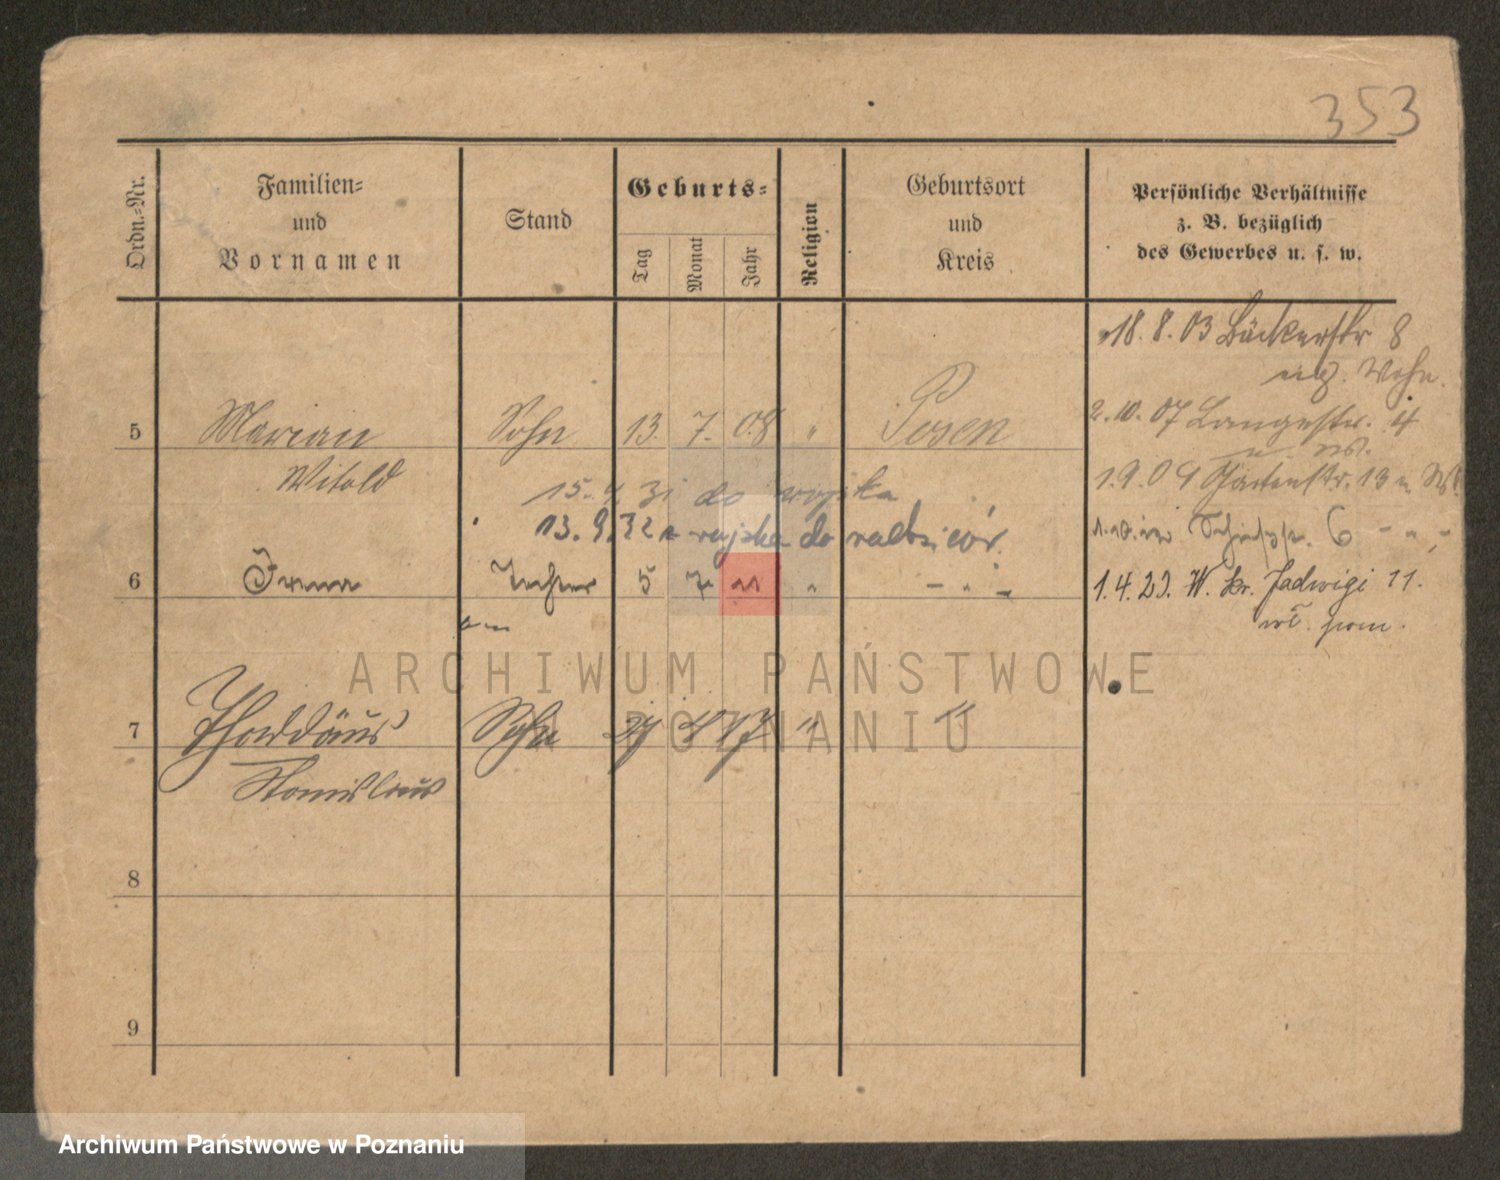 353
Ordn.-Nr.
Familien-
und
Vornamen
Stand
Geburts-
Tag
Monat
Jahr
Religion
Geburtsort
und
Kreis
Persönliche Verhältnisse
z. B. bezüglich
des Gewerbes u. s. w.
18. 8. 03 Bäckerstr 8
Wohn.
5 Marian Sohn 13. 7. 08 " Posen
2. 10. 07 Langestr. 4
Witold
1. 9. 09 Gartenstr. 13
15. 4 31 do wojska
13. 9. 32 z wojska do rodziców.
6 Irena Tochter 5 7 11 "
6
1. 4. 23. W. kr. Jadwigi 11.
ARCHIWUM PAŃSTWOWE
W POZNANIU
7 Thaddäus Sohn 27 17 " "
Stanislaus
8
9
Archiwum Państwowe w Poznaniu